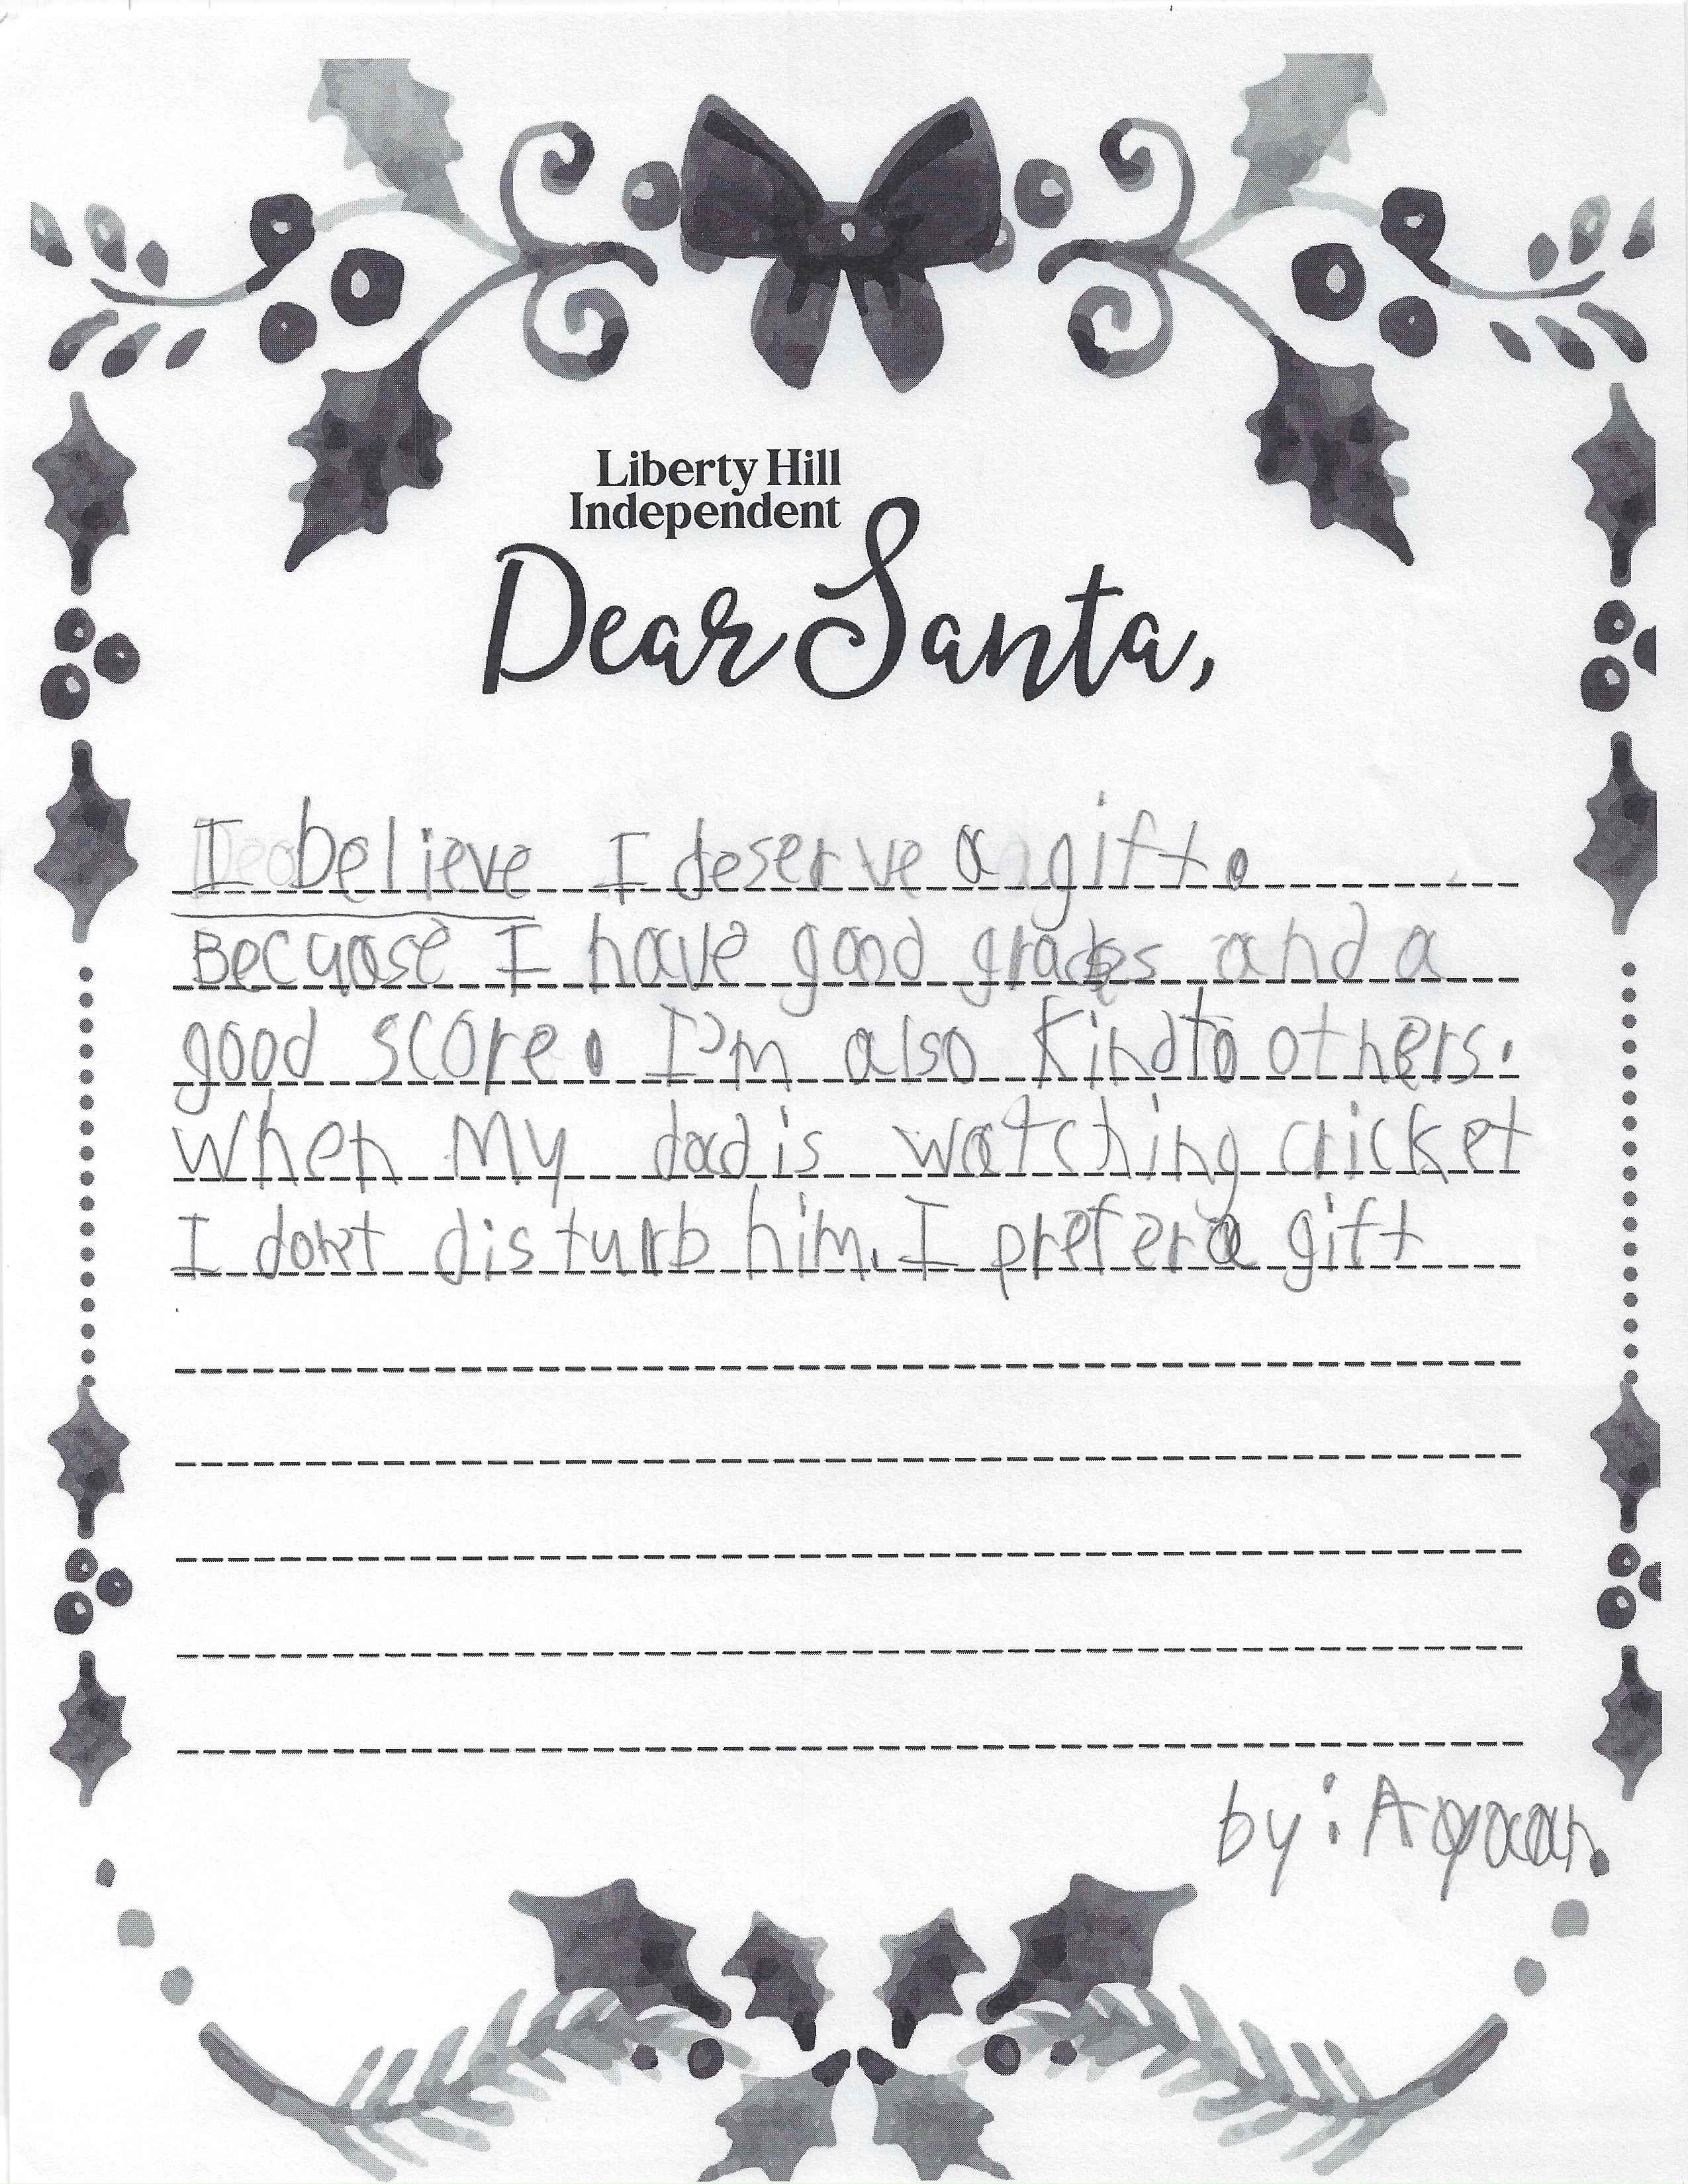 Liberty Hill
Independent
Dear Santa,
I believe I deserve a gift.
Becuase I have good grades and a
good score. I'm also kind to others.
when My dad is watching cricket
I don't disturb him. I prefer a gift
by: Ayaan.